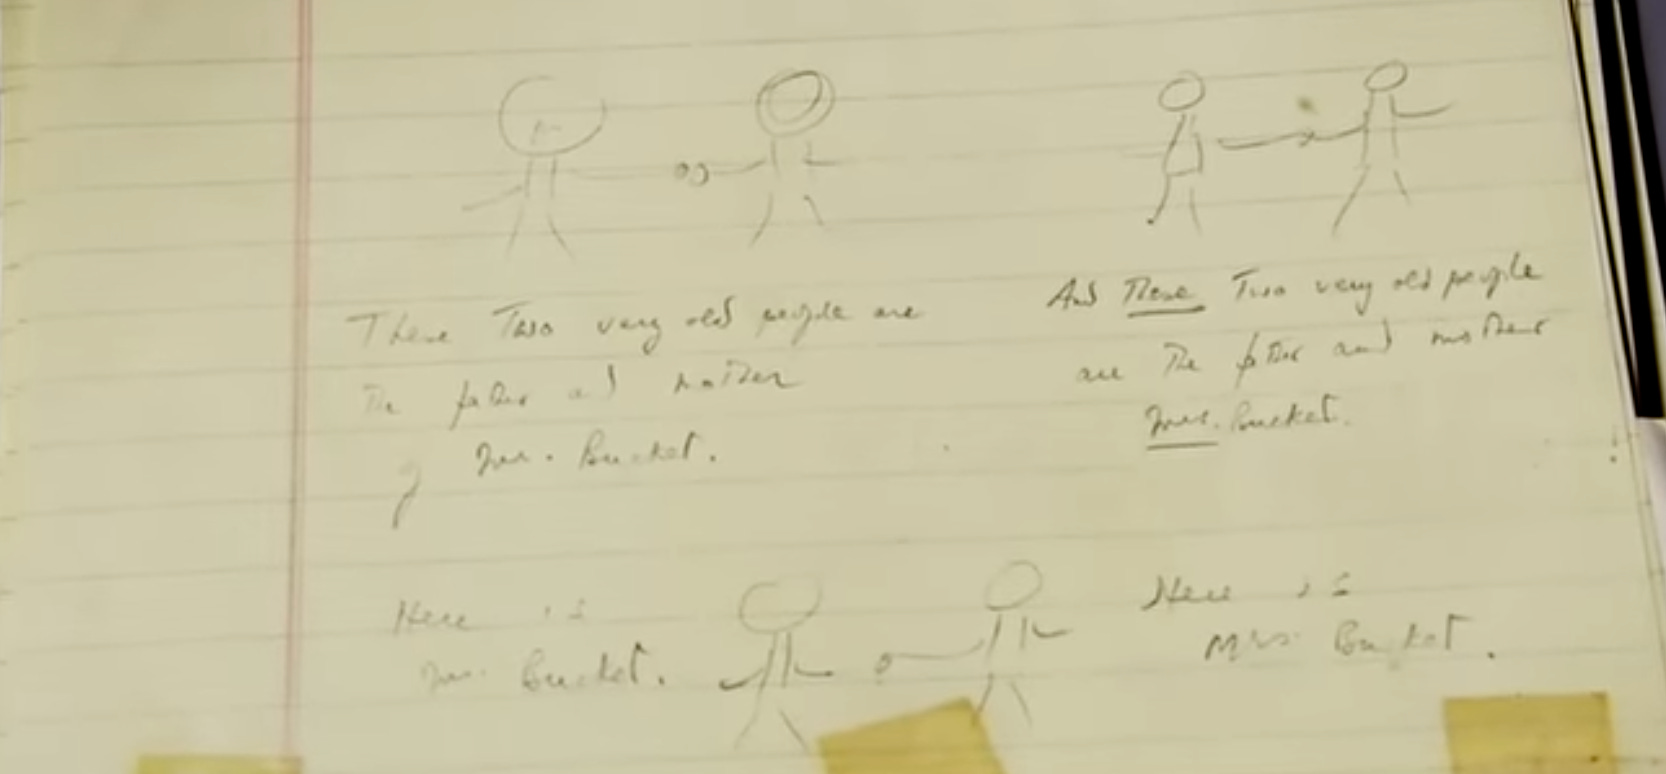 These Two very old people are
The father and mother
of Mr. Bucket.
And These Two very old people
are The father and mother
Mrs. Bucket.
Here is
Mr. Bucket.
Here is
Mrs Bucket.